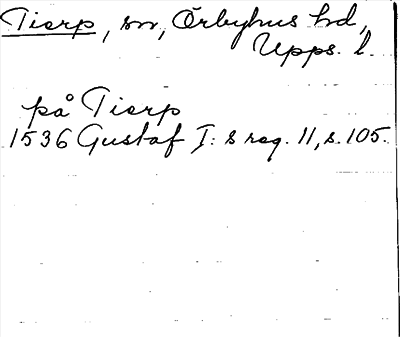 Tierp, sn, Örbyhus hd,
Upps. l.
på Tierp
1536 Gustaf I: s reg. 11, s. 105.